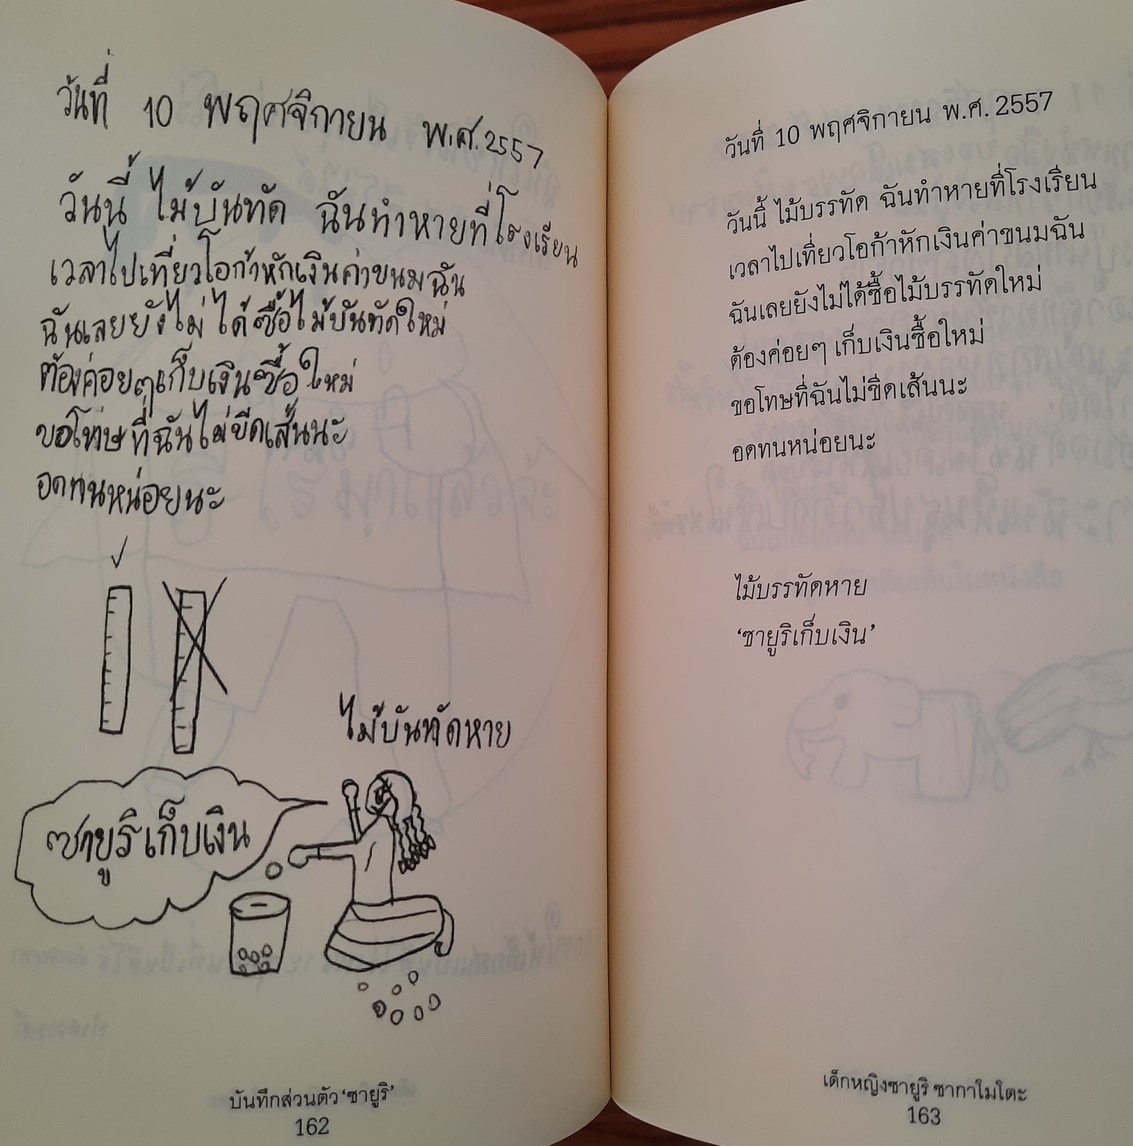 วันที่ 10 พฤศจิกายน พ.ศ.2557
วันนี้ ไม้บันทัด ฉันทำหายที่โรงเรียน
เวลาไปเที่ยวโอก้าหักเงินค่าขนมฉัน
ฉันเลยยังไม่ได้ซื้อไม้บันทัดใหม่
ต้องค่อยๆเก็บเงินซื้อใหม่
ขอโทษที่ฉันไม่ขีดเส้นนะ
อดทนหน่อยนะ
ไม้บันทัดหาย
ซายูริเก็บเงิน
บันทึกส่วนตัว ‘ซายูริ’
162
วันที่ 10 พฤศจิกายน พ.ศ. 2557
วันนี้ ไม้บรรทัด ฉันทำหายที่โรงเรียน
เวลาไปเที่ยวโอก้าหักเงินค่าขนมฉัน
ฉันเลยยังไม่ได้ซื้อไม้บรรทัดใหม่
ต้องค่อยๆ เก็บเงินซื้อใหม่
ขอโทษที่ฉันไม่ขีดเส้นนะ
อดทนหน่อยนะ
ไม้บรรทัดหาย
‘ซายูริเก็บเงิน’
เด็กหญิงซายูริ ซากาโมโตะ
163